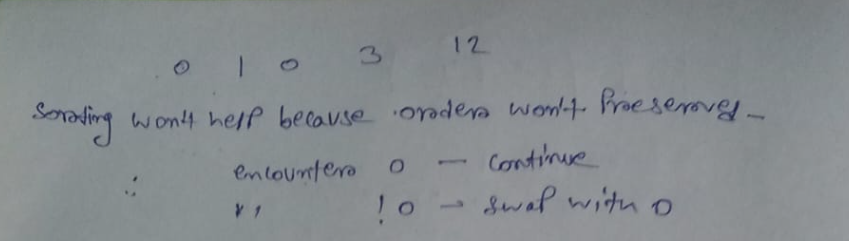 0 1 0 3 12
Sorting won't help because order won't Preserved -
∴ encounter 0 - continue
" !0 → swap with 0